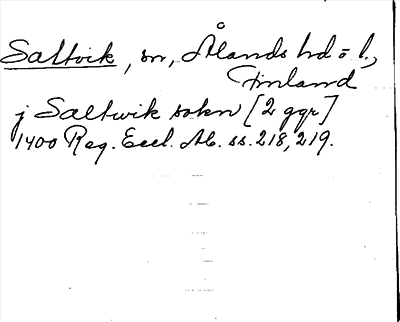 Saltvik, sn, Ålands hd o. l.,
Finland
j Saltwik sokn [2 ggr]
1400 Reg. Eccl. Ab. ss. 218, 219.